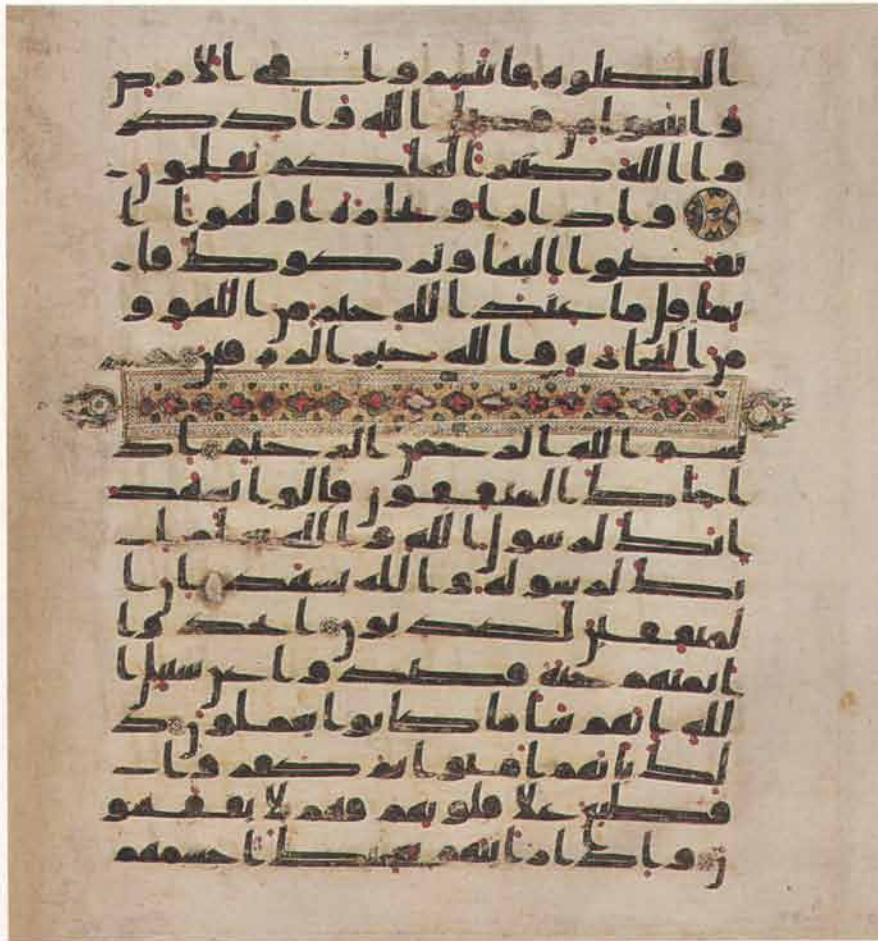 الصلوه فانتشروا في الارض
وابتغوا من فضل الله واذكر
وا الله كثيرا لعلكم تفلحون
واذا راوا تجره او لهوا ا
نفضوا اليها وتركوك قا
ئما قل ما عند الله خير من اللهو و
من التجره والله خير الرزقين
بسم الله الرحمن الرحيم اذ
ا جاك المنفقون قالوا نشهد
انك لرسول الله والله يعلم ا
نك لرسوله والله يشهد ان ا
لمنفقين لكذبون اتخذوا
ايمنهم جنه فصدوا عن سبيل ا
لله انهم سا ما كانوا يعملون ذ
لك بانهم امنوا ثم كفروا
فطبع علا قلوبهم فهم لا يفقهو
ن واذا رايتهم تعجبك اجسمهم